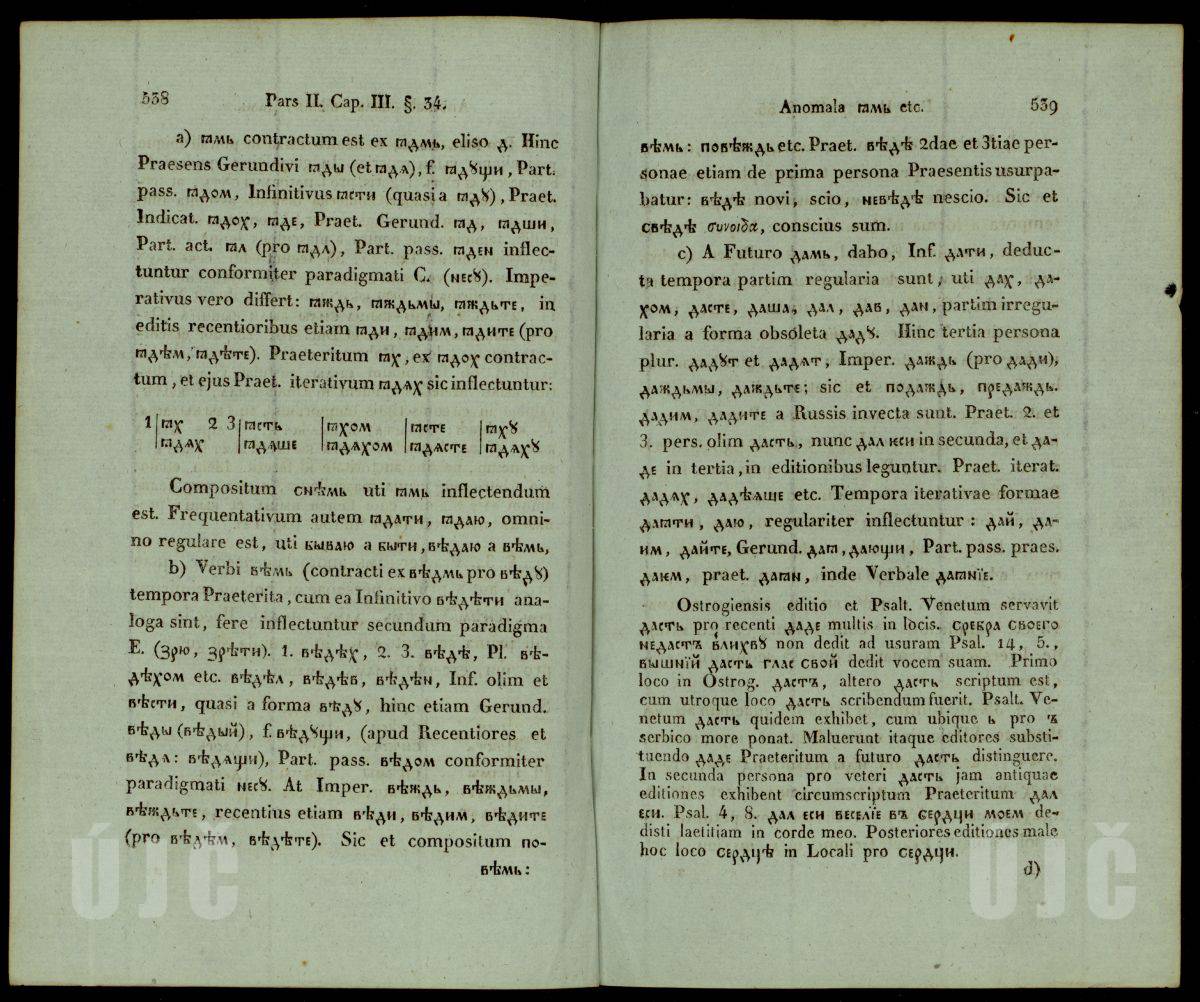 538 Pars II. Cap. III. §. 34.
a) ꙗмь contractum est ex ꙗдмь, eliso д. Hinc
Praesens Gerundivi ꙗды (et ꙗдѧ), f. ꙗдꙋщи, Part.
pass. ꙗдом, Infinitivus ꙗсти (quasi a ꙗдꙋ), Praet.
Indicat. ꙗдох, ꙗде, Praet. Gerund. ꙗд, ꙗдши,
Part. act. ꙗл (pro ꙗдл), Part. pass. ꙗден inflec-
tuntur conformiter paradigmati C. (несꙋ). Impe-
rativus vero differt: ꙗждь, ꙗждьмы, ꙗждьте, in
editis recentioribus etiam ꙗди, ꙗдим, ꙗдите (pro
ꙗдѣм, ꙗдѣте). Praeteritum ꙗх, ex ꙗдох contrac-
tum, et ejus Praet. iterativum ꙗдѧх sic inflectuntur:
1 | ꙗх 2 3 | ꙗсть | ꙗхом | ꙗсте | ꙗхꙋ
| ꙗдѧх | ꙗдѧше | ꙗдѧхом | ꙗдѧсте | ꙗдѧхꙋ
Compositum снѣмь uti ꙗмь inflectendum
est. Frequentativum autem ꙗдати, ꙗдаю, omni-
no regulare est, uti бываю a быти, вѣдаю a вѣмь,
b) Verbi вѣмь (contracti ex вѣдмь pro вѣдꙋ)
tempora Praeterita, cum ea Infinitivo вѣдѣти ana-
loga sint, fere inflectuntur secundum paradigma
E. (зрю, зрѣти). 1. вѣдѣх, 2. 3. вѣдѣ, Pl. вѣ-
дѣхом etc. вѣдѣл, вѣдѣв, вѣдѣн, Inf. olim et
вѣсти, quasi a forma вѣдꙋ, hinc etiam Gerund.
вѣды (вѣдый), f. вѣдꙋщи, (apud Recentiores et
вѣдѧ: вѣдѧщи), Part. pass. вѣдом conformiter
paradigmati несꙋ. At Imper. вѣждь, вѣждьмы,
вѣждьте, recentius etiam вѣди, вѣдим, вѣдите
(pro вѣдѣм, вѣдѣте). Sic et compositum по-
вѣмь:
Anomala ꙗмь etc. 539
вѣмь: повѣждь etc. Praet. вѣдѣ 2dae et 3tiae per-
sonae etiam de prima persona Praesentis usurpa-
batur: вѣдѣ novi, scio, невѣдѣ nescio. Sic et
свѣдѣ συνοιδα, conscius sum.
c) A Futuro дамь, dabo, Inf. дати, deduc-
ta tempora partim regularia sunt, uti дах, да-
хом, дасте, даша, дал, дав, дан, partim irregu-
laria a forma obsoleta дадꙋ. Hinc tertia persona
plur. дадꙋт et дадѧт, Imper. даждь (pro дади),
даждьмы, даждьте; sic et подаждь, предаждь.
дадим, дадите a Russis invecta sunt. Praet. 2. et
3. pers. olim дасть, nunc дал ѥси in secunda, et да-
де in tertia, in editionibus leguntur. Praet. iterat.
дадѧх, дадѣѧше etc. Tempora iterativae formae
даꙗти, даю, regulariter inflectuntur: дай, да-
им, дайте, Gerund. даꙗ, дающи, Part. pass. praes.
даѥм, praet. даꙗн, inde Verbale даꙗнїе.
Ostrogiensis editio et Psalt. Venetum servavit
дасть pro recenti даде multis in locis. сребра своего
недастъ влихвꙋ non dedit ad usuram Psal. 14, 5.,
вышнїй дасть глас свой dedit vocem suam. Primo
loco in Ostrog. дастъ, altero дасть scriptum est,
cum utroque loco дасть scribendum fuerit. Psalt. Ve-
netum дасть quidem exhibet, cum ubique ь pro ъ
serbico more ponat. Maluerunt itaque editores substi-
tuendo даде Praeteritum a futuro дасть distinguere.
In secunda persona pro veteri дасть jam antiquae
editiones exhibent circumscriptum Praeteritum дал
еси. Psal. 4, 8. дал еси веселїе въ сердци моем de-
disti laetitiam in corde meo. Posteriores editiones male
hoc loco сердцѣ in Locali pro сердци.
d)
ÚJČ
ÚJČ